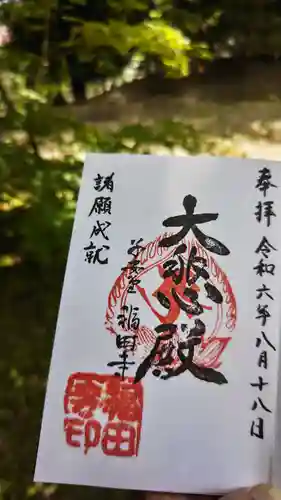 奉拝 令和六年八月十八日
大悲殿
福田寺
諸願成就
福田
寺印